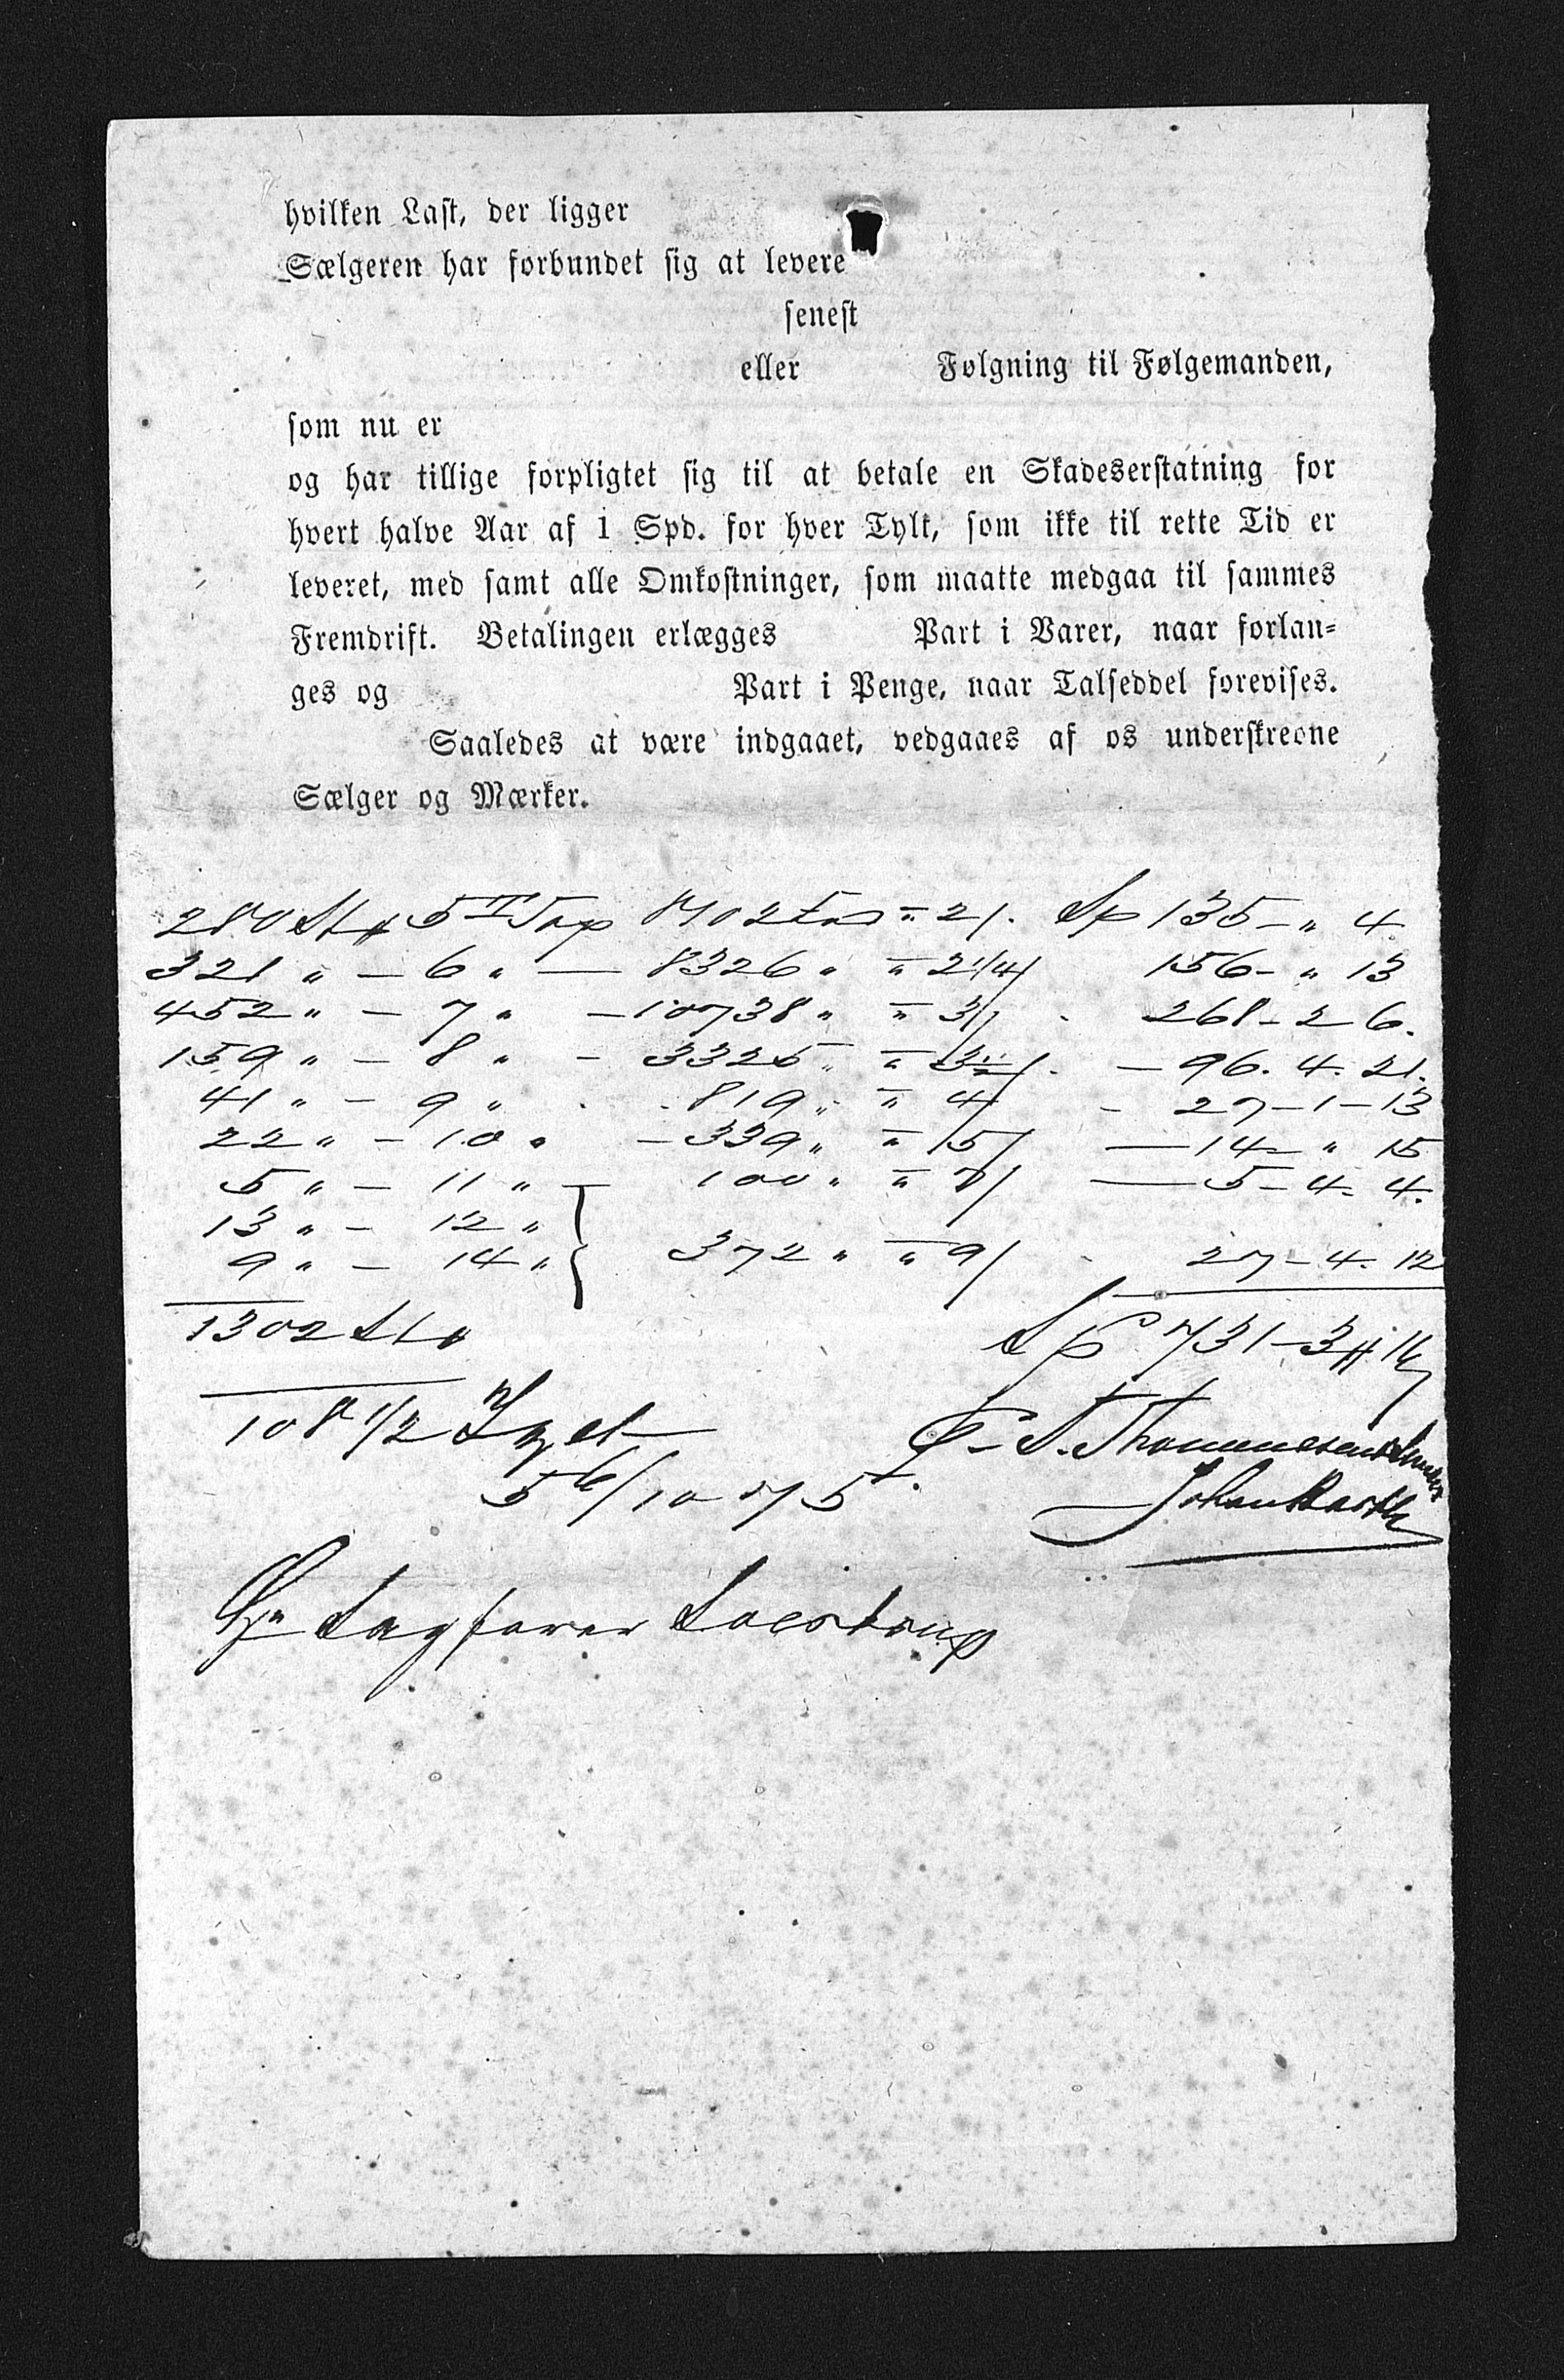 hvilken Last, der ligger
Sælgeren har forbundet sig at levere
senest
eller Følgning til Følgemanden,
som nu er
og har tillige forpligtet sig til at betale en Skadeserstatning for
hvert halve Aar af 1 Spd. for hver Tylt, som ikke til rette Tid er
leveret, med samt alle Omkostninger, som maatte medgaa til sammes
Fremdrift. Betalingen erlægges Part i Varer, naar forlan-
ges og Part i Penge, naar Talseddel forevises.
Saaledes at være indgaaet, vedgaaes af os underskrevne
Sælger og Mærker.
280 St 5" Top " 2/. Sp 135 - " 4
321 " - 6 " - 8326 " " 2 1/4/ 156 - " 13
452 " - 7 " - 10738 " " 3/ . 268 - 2 6.
159 " - 8 " - 3325 " " 3 1/2/. - 96. 4. 21.
41 " - 9 " . . 819 " " 4/ - 27 - 1 - 13
22 " - 10 " - 339 " " 5/ - 14 - " 15
5 " - 11 " - 100 " " 7/ - 5 - 4 - 4.
13 " - 12 "
9 " - 14 " 372 " " 9/ . 27 - 4. 12
1302 St
Sp 731 - 3 # 16
108 1/2 Tylt
Johan Barth
6/10 75.